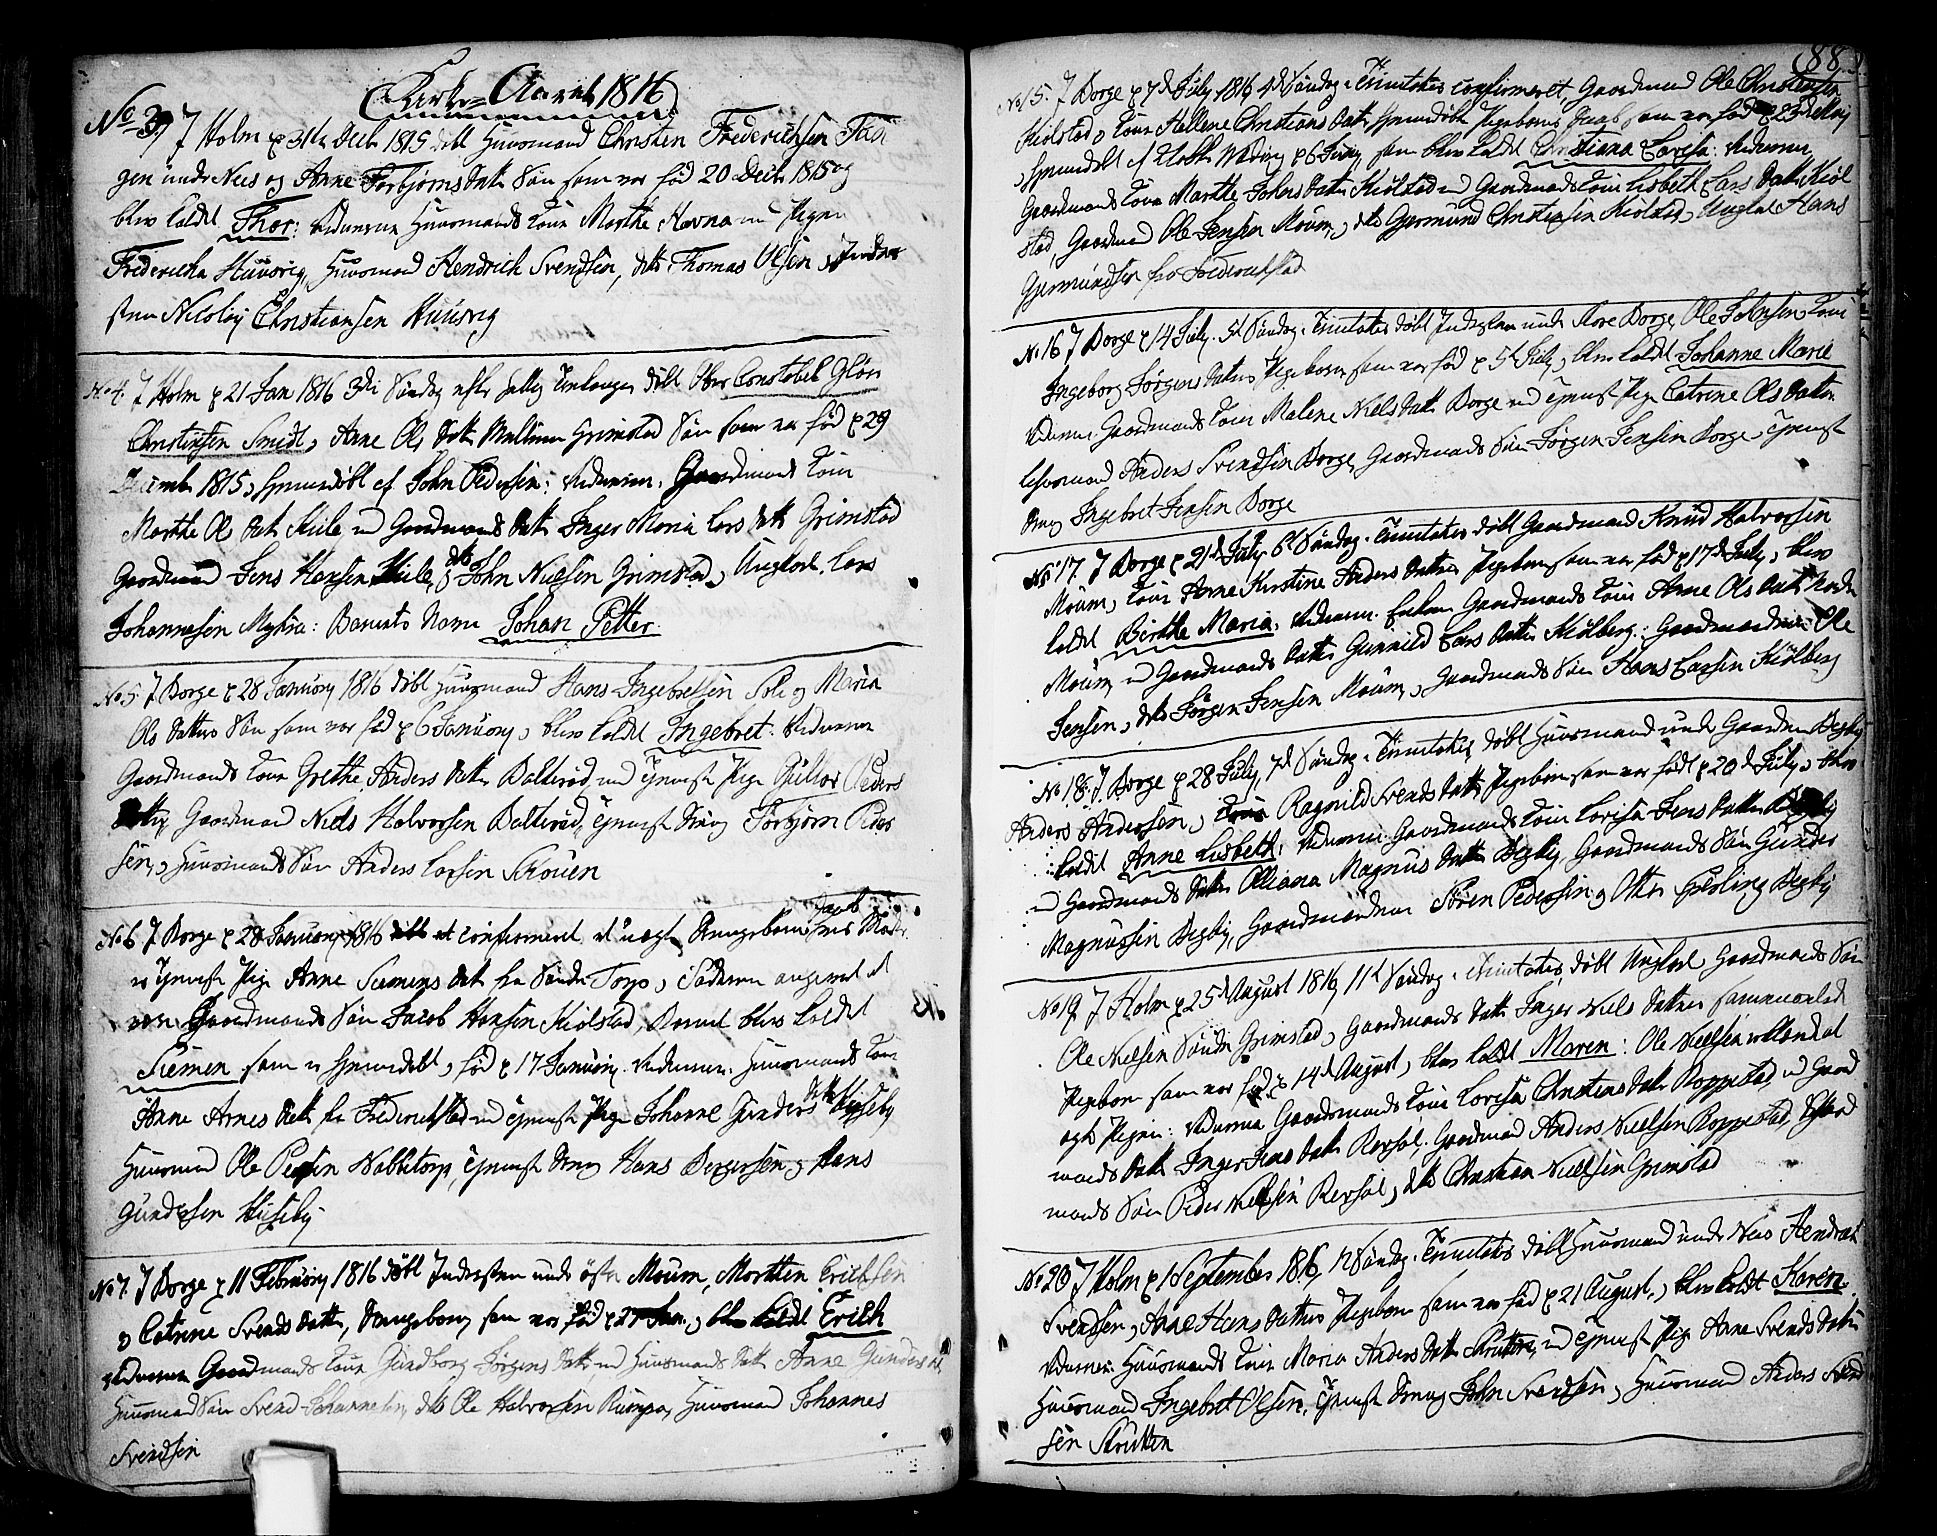 Kirke=Aaret 1816
No 3, J Holm d 31te Decb 1815 döbt Huusmand Christen Frederichsen Fall
gen unde Nees og Anne Torbjørns Datt Sön som var föd 20 Decb 1815 og
blev kaldt Thor: Vidnerne Huusmands Kone Marthe Havna Pigen
Fredericka Huusvig, Huusmand Hendrich Svendsen, dito Thomas Olsen,
Nicolay Christiansen Huusvig
No 4. J Holm d 21 Jan 1816 3die Söndag efter hellig Tre konger döbt Ober Constabel
Christensen Smidt, Anne Ols Datt Grimstad Sön som var föd d 29
Decemb 1815, hjemmedöbt af John Pedersen: Vidnerne: Gaardmands Kone
Marthe Ols Datt Hiile, Gaardmands Datt Inger Maria Lars Datt Grimstad
Gaardmand Jens Hansen Hiile, dito John Nielsen Grimstad, Ungkarl Lars
Johannesen Myhra: Barnets Navn Johan Petter.
No 5. J Borge d 28 Januarij 1816 döbt Huusmand Hans Ingebretsen Sole og Maria
Ols Datters Sön som var föd d 6 Januarij, blev kaldt Ingebret: Vidnerne
Gaardmands Kone Grethe Anders Datt Balteröd, tjenest Pige Gulloe Peders
Datt, Gaardmand Niels Halvorsen Balteröd, tjenest Dreng Torbjørn Peder
sen, Huusmands Sön Anders Larsen Skouen
No 6. J Borge d 28 Januarij 1816 confirmeret et uægte Drengebarn hvis Moder
er tjenest Pige Anne Siemens Datt fra Söndre Torp, Faderen angivet at
være Gaardmands Sön Jacob Hansen Kiölstad, Barnet blev kaldet
Siemen som er hjemmedöbt, föd d 17 Januarij. Vidnerne: Huusmands Kone
Anne Arnes Datt fra Frederichstad, tjenest Pige Johanne Gunders Datt Huseby
Huusmand Ole Nabbetorp, tjenest Dreng Hans Bergersen, Hans
Gundersen Huseby
No 7. J Borge d 11 Februarij 1816 döbt Inderste unde östre Moum, Mortten Erichsen
& Catrine Svends Datter, Drengebarn, som var föd d 27 Jan., blev kaldt Erich
Vidnerne Gaardmands Kone Gundborg Jörgens Datt, Huusmands Datt Anne Gunders Dt
Huusmand Sön Svend Johannesen, dito Ole Halvorsen Rumpa, Huusmand Johannes
Svendsen
88
No 15. J Borge d 7de July 1816 4de Söndag e Trinitatis confirmeret, Gaardmand Ole Christensen
Kiölstad, Kone Hellene Christians Datt, hjemmedöbte Pigebarn som var föd d 23de Maij
hjemmedöbt af d 6 Juny, som blev kaldt Christiana Lovisa: Vidnerne,
Gaardmands Kone Marthe Johns Datt Kiölstad, Gaardmands Kone Lisbeth Lars Datt Kiöl
stad, Gaardmand Ole Jensen Moum, dito Gjermund Christensen Kiölstad, Ungkarl Hans
Gjermundsen fra Frederichstad
No 16 J Borge d 14 July. 5te Söndag e Trinitatis döbt Inderste unde Store Borge Ole Johnsen, Kone
Ingeborg Jörgens Datters Pigebarn som var föd d 5te July, blev kaldt Johanne Marie
Vidnerne Gaardmands Kone Malene Niels Datt Borge, tjenest Pige Catrine Ols Datter
Anders Svendsen Borge, Gaardmands Sön Jörgen Jensen Borge, tjenest
Dreng Ingebret Jensen Borge
No 17. J Borge d 21de July 6te Söndag e Trinitatis döbt Gaardmand Knud Halvorsen
Moum, Kone Anne Kirstine Anders Datters Pigebarn som var föd d 17de July, blev
kaldt Birthe Maria. Vidnerne. Gaardmands Kone Anne Ols Datt
Moum, Gaardmands Datter Gunnild Lars Datter Kiölberg. Gaardmændene Ole
Jensen, dito Jörgen Jensen Moum, Gaardmands Sön Hans Larsen Kiölberg
No 18. J Borge d 28 July, 7de Söndag e Trinitatis, döbt Huusmand unde Gaarden Begby
Anders Andersen, Ragnild Svends Datt Pigebarn som var födt d 20de July, blev
kaldt Anne Lisbeth: Vidnerne: Gaardmands Kone Lovisa Jens Datter Begby
Gaardmands Datter Olliana Magnus Datt Begby, Gaardmands Sön Gunder
Magnussen Begby, Gaardmændene Sören Pedersen, Otter Begby
No 19. J Holm d 25de August 1816, 11te Söndag e Trinitatis, döbt Ungkarl, Gaardmands Sön
Ole Nielsen Söndre Grimstad, Gaardmands Datt Inger Niels Datters
Pigebarn som var föd d 14de August, blev kaldt Maren: Ole Nielsen
ægte Pigen: Vidnerne Gaardmands Kone Lovisa Christens Datt Roppestad, Gaard
mands Datt Inger Jens Datt Revhol. Gaardmand Anders Nielsen Roppestad, Gaard
mands Sön Peder Nielsen Revhol, dito Christian Nielsen Grimstad
No 20 J Holm d 1 September 1816, 12 Söndag e Trinitatis döbt Huusmand unde Nes Hendrich
Svendsen, Anne Hans Datters Pigebarn som var föd d 21 August, blev kaldt Karen.
Vidnerne: Huusmands Kone Maria Anders Datt Skrutten, tjenest Pige Anne Svends Datter
Huusmand Ingebret Olsen, tjenest Dreng John Svendsen, Huusmand Anders Svend
sen Skrutten